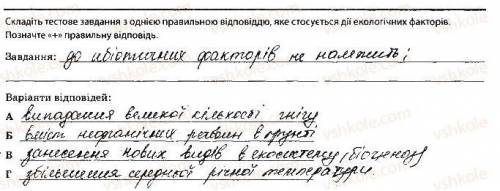 Складіть тестове завдання з однією правильною відповіддю, яке стосується дії екологічних факторів.
Позначте «+» правильну відповідь.
Завдання: до абіотичних факторів не належить:
Варіанти відповідей:
А випадання великої кількості снігу
Б вміст неорганічних речовин в ґрунті
В занесення нових видів в екосистему (біогеноз)
Г збільшення середньої річної температури.